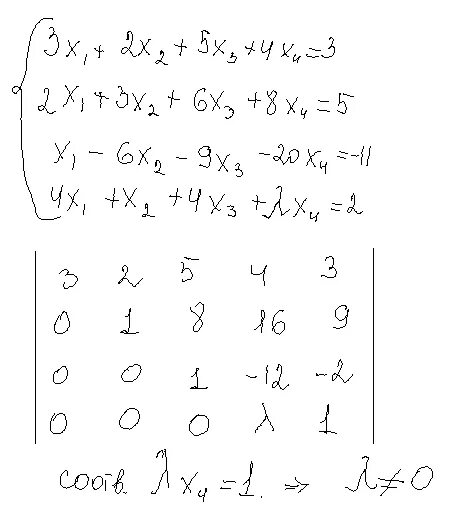 3x₁ + 2x₂ + 5x₃ + 4x₄ = 3
2x₁ + 3x₂ + 6x₃ + 8x₄ = 5
x₁ - 6x₂ - 9x₃ - 20x₄ = -11
4x₁ + x₂ + 4x₃ + λx₄ = 2
3 2 5 4 3
0 1 8 16 9
0 0 1 -12 -2
0 0 0 λ 1
соотв. λx₄ = 1. => λ ≠ 0